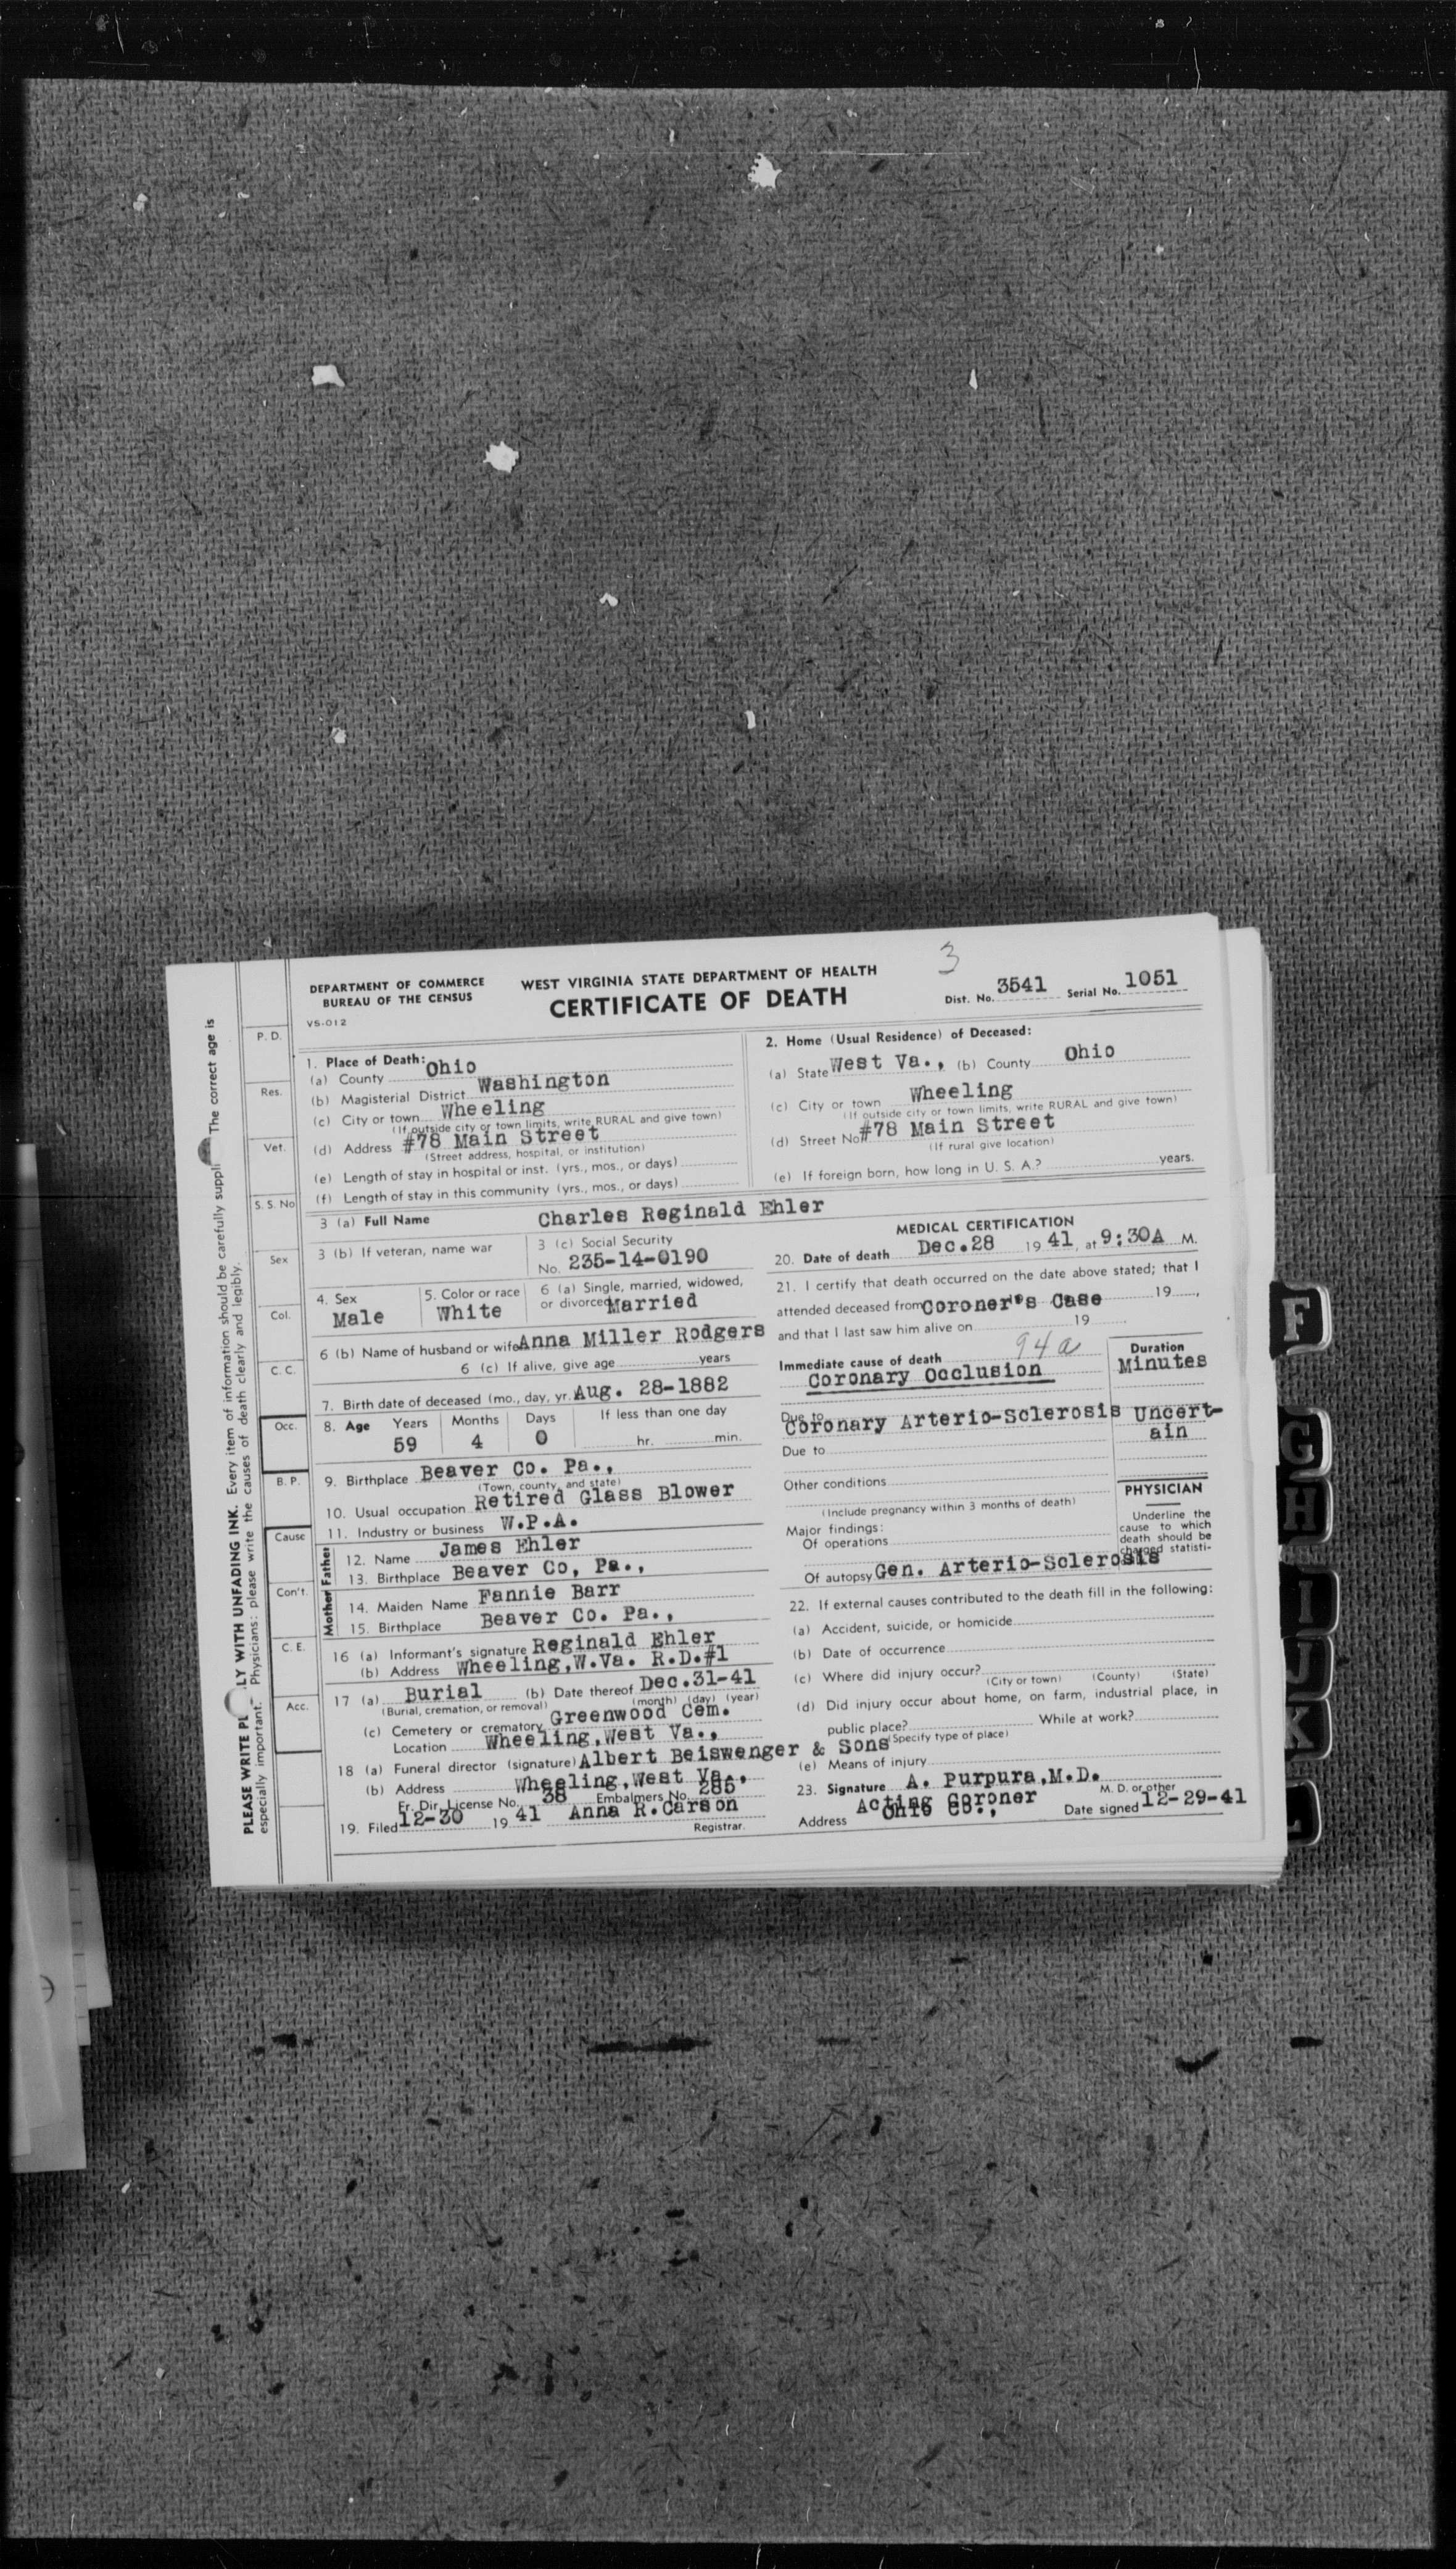 DEPARTMENT OF COMMERCE
BUREAU OF THE CENSUS
VS-012
WEST VIRGINIA STATE DEPARTMENT OF HEALTH
CERTIFICATE OF DEATH
3
Dist. No. 3541 Serial No. 1051
1. Place of Death:
(a) County Ohio
(b) Magisterial District Washington
(c) City or town Wheeling
(If outside city or town limits, write RURAL and give town)
(d) Address #78 Main Street
(Street address, hospital, or institution)
(e) Length of stay in hospital or inst. (yrs., mos., or days)
(f) Length of stay in this community (yrs., mos., or days)
2. Home (Usual Residence) of Deceased:
(a) State West Va., (b) County Ohio
(c) City or town Wheeling
(If outside city or town limits, write RURAL and give town)
(d) Street No. #78 Main Street
(If rural give location)
(e) If foreign born, how long in U. S. A.? years.
3 (a) Full Name Charles Reginald Ehler
3 (b) If veteran, name war
3 (c) Social Security
No. 235-14-0190
4. Sex
Male
5. Color or race
White
6 (a) Single, married, widowed,
or divorced Married
6 (b) Name of husband or wife Anna Miller Rodgers
6 (c) If alive, give age years
7. Birth date of deceased (mo., day, yr. Aug. 28-1882
8. Age Years Months Days If less than one day
59 4 0 hr. min.
9. Birthplace Beaver Co. Pa.,
(Town, county, and state)
10. Usual occupation Retired Glass Blower
11. Industry or business W.P.A.
Father
12. Name James Ehler
13. Birthplace Beaver Co, Pa.,
Mother
14. Maiden Name Fannie Barr
15. Birthplace Beaver Co. Pa.,
16 (a) Informant's signature Reginald Ehler
(b) Address Wheeling,W.Va. R.D.#1
17 (a) Burial (b) Date thereof Dec.31-41
(Burial, cremation, or removal) (month) (day) (year)
(c) Cemetery or crematory Greenwood Cem.
Location Wheeling,West Va.,
18 (a) Funeral director (signature) Albert Beiswenger & Sons
(b) Address Wheeling,West Va.,
Fr. Dir. License No. 38 Embalmers No. 285
19. Filed 12-30 19 41 Anna R.Carson
Registrar.
MEDICAL CERTIFICATION
20. Date of death Dec.28 19 41, at 9:30A M.
21. I certify that death occurred on the date above stated; that I
attended deceased from Coroner's Case 19 ,
and that I last saw him alive on 19
94a
Immediate cause of death
Coronary Occlusion
Duration
Minutes
Due to
Coronary Arterio-Sclerosis Uncert-
ain
Due to
Other conditions
(Include pregnancy within 3 months of death)
Major findings:
Of operations
Of autopsy Gen. Arterio-Sclerosis
PHYSICIAN
Underline the
cause to which
death should be
charged statisti-
22. If external causes contributed to the death fill in the following:
(a) Accident, suicide, or homicide
(b) Date of occurrence
(c) Where did injury occur?
(City or town) (County) (State)
(d) Did injury occur about home, on farm, industrial place, in
public place? While at work?
(Specify type of place)
(e) Means of injury
23. Signature A. Purpura,M.D.
M. D. or other
Acting Coroner
Address Ohio Co., Date signed 12-29-41
P. D.
Res.
Vet.
S. S. No
Sex
Col.
C. C.
Occ.
B. P.
Cause
Con't.
C. E.
Acc.
PLEASE WRITE PL LY WITH UNFADING INK. Every item of information should be carefully suppli The correct age is
especially important. Physicians: please write the causes of death clearly and legibly.
F
G
H
I
J
K
L